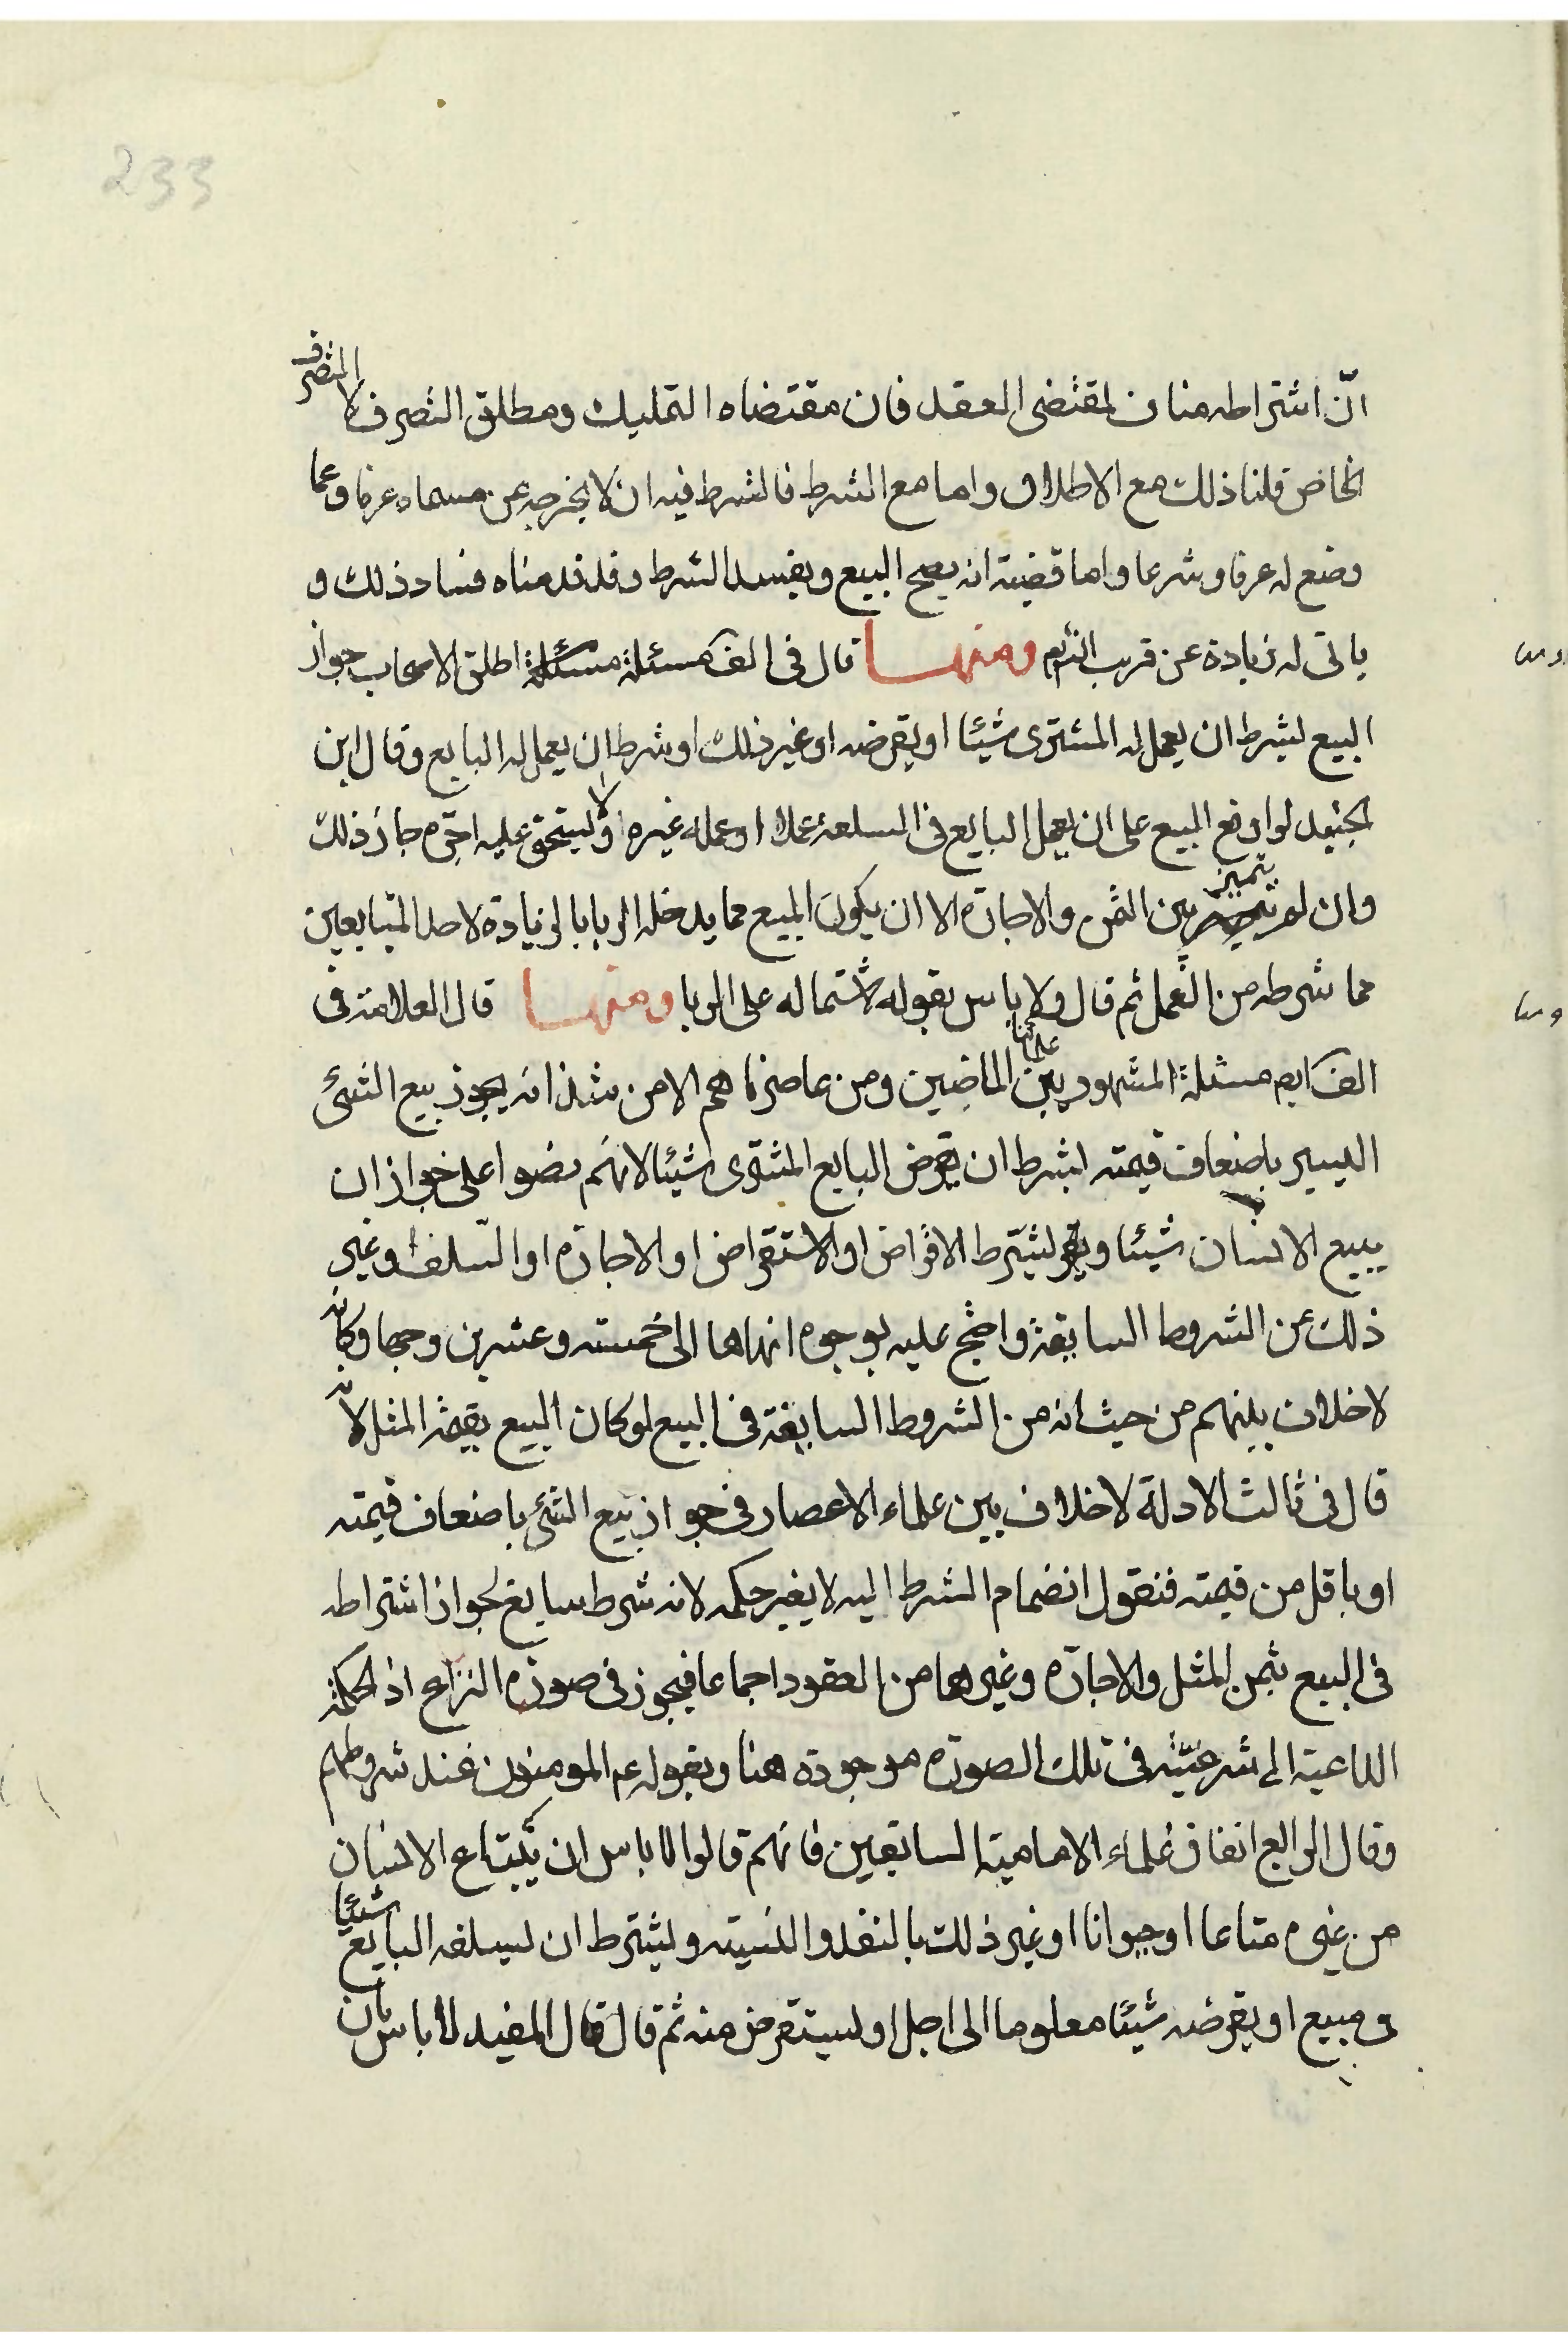 233
انّ اشتراطه مناف لمقتضى العقد فان مقتضاه التمليك ومطلق التصرف لا التصرف
الخاص قلنا ذلك مع الاطلاق واما مع الشرط فالشرط فيه ان لا يخرجه عن مسماه عرفا وعما
وضع له عرفا وشرعا واما قضيته انه يصح البيع ويفسد الشرط وقد قدمناه فساد ذلك و
ياتى له زيادة عن قريب انشاء ومنهــا قال فى الف مسئلة اطلق الاصحاب جواز
البيع بشرط ان يعمل له المشترى شيئا او يقرضه او غير ذلك او شرط ان يعمل له البايع وقال ابن
الجنيد لو اوقع المبيع على ان يعمل البايع فى السلعة عملا او عمله غيره ولا يستحق عليه اجره جاز ذلك
وان لم يتميز بين الثمن والاجارة الا ان يكون المبيع مما يدخله الربا بالزيادة لاحد المتبايعين
مما شرطه من العمل ثم قال ولا باس بقوله لاشتماله على الربا ومنهــا قال العلامة فى
الف ايم مسئلة المشهور بين علمائنا الماضين ومن عاصرناهم الا من شذ انه يجوز بيع الشئ
اليسير باضعاف قيمته بشرط ان يقرض البايع المشترى شيئا لانهم نضوا على جواز ان
يبيع الانسان شيئا ويشترط الاقراض او الاستقراض او الاجارة او السلف وغير
ذلك من الشروط السايغة واحتج عليه بوجوه انهاها الى خمسته وعشرين وجها وكانه
لا خلاف بينهم من حيث انه من الشروط السايغة فى البيع لو كان البيع بقيمة المثل لانه
قال فى ثالث الادلة لا خلاف بين علماء الاعصار فى جواز بيع الشئ باضعاف قيمته
او باقل من قيمته فنقول انضمام الشرط اليه لا يغير حكمه لانه شرط سايغ لجواز اشتراطه
فى البيع بثمن المثل والاجارة وغيرهما من العقود اجماعا فيجوز فى صورة النزاع اذ الحكمة
الداعية الى شرعيته فى تلك الصورة موجودة هنا وبقوله عم المومنون عند شروطهم
وقال الرابع اتفاق علماء الامامية السابقين فانهم قالوا لا باس ان يبتاع الانسان
من غيره متاعا او حيوانا او غير ذلك بالنقد والنسية ويشترط ان يسلفه البايع شيئا
فى مبيع او يقرضه شيئا معلوما الى اجل او يستقرض منه ثم قال قال المفيد لا باس بان